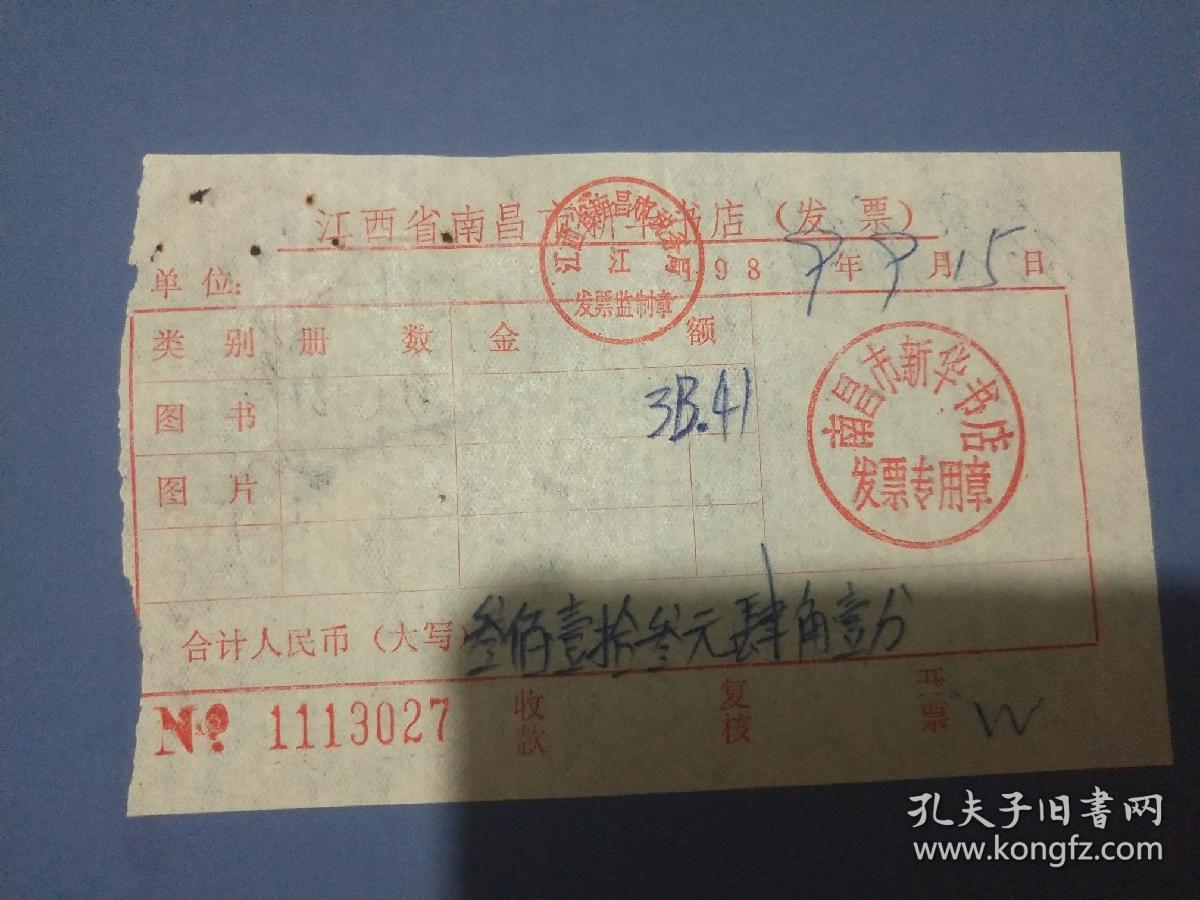 江西省南昌市新华书店（发票）
江西省南昌市税务局
江
发票监制章
单位:
198 7年 7月15日
类别 册数 金额
图书 313.41
图片
南昌市新华书店
发票专用章
合计人民币（大写）叁佰壹拾叁元肆角壹分
№ 1113027 收款 复核 开票
孔夫子旧书网
www.kongfz.com